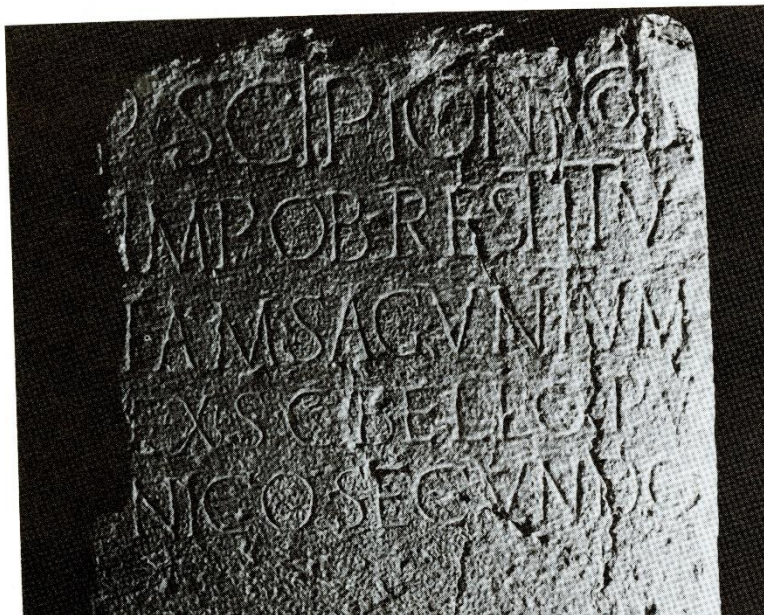 P. SCIPIONI COS
IMP. OB. RESTITV
TAM SAGVNTVM
EX S C BELLO PV
NICO SECVNDO